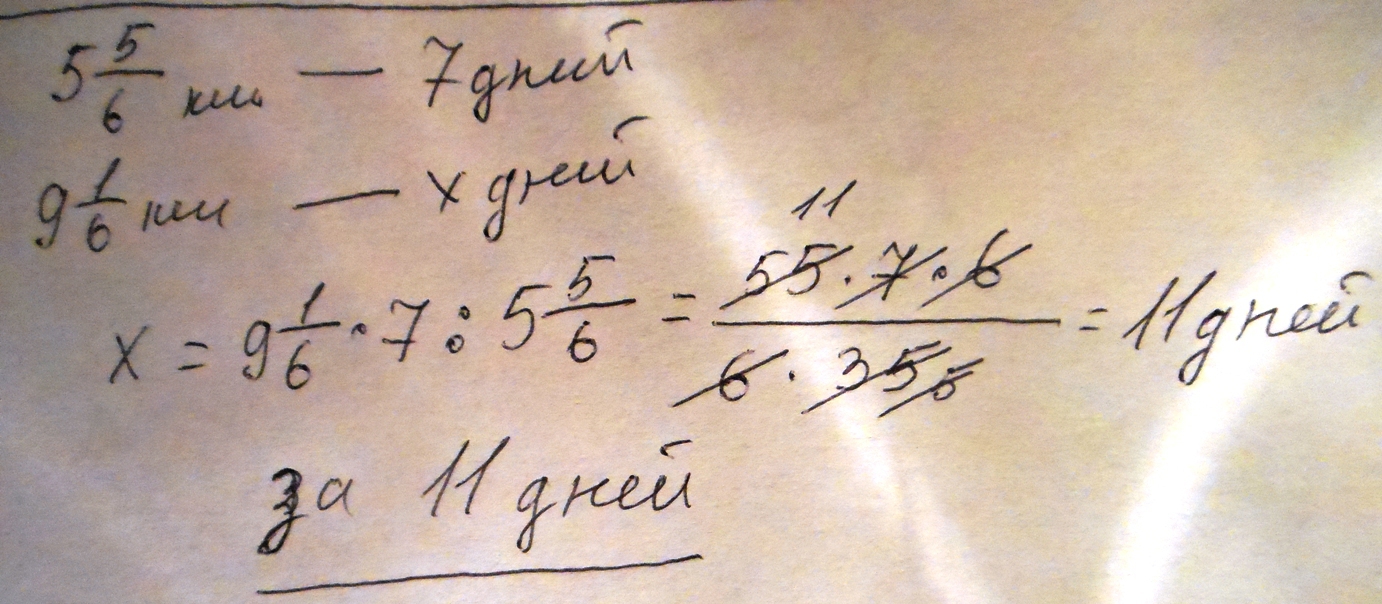 5 5/6 км — 7 дней
9 1/6 км — x дней
x = 9 1/6 · 7 : 5 5/6 = 55 · 7 · 6 / 6 · 35 = 11 дней
11
5
за 11 дней